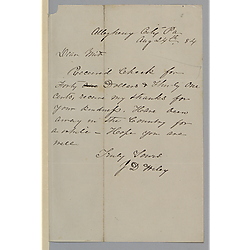 Alleghany City Pa.
Aug 24th, 84
Dear Mad
Received Check for
Forty Dollars & Thirty One
Cents, receive my thanks for
your kindness. Have been
away in the Country for
a while – Hope you are
well
Truly Yours
J D